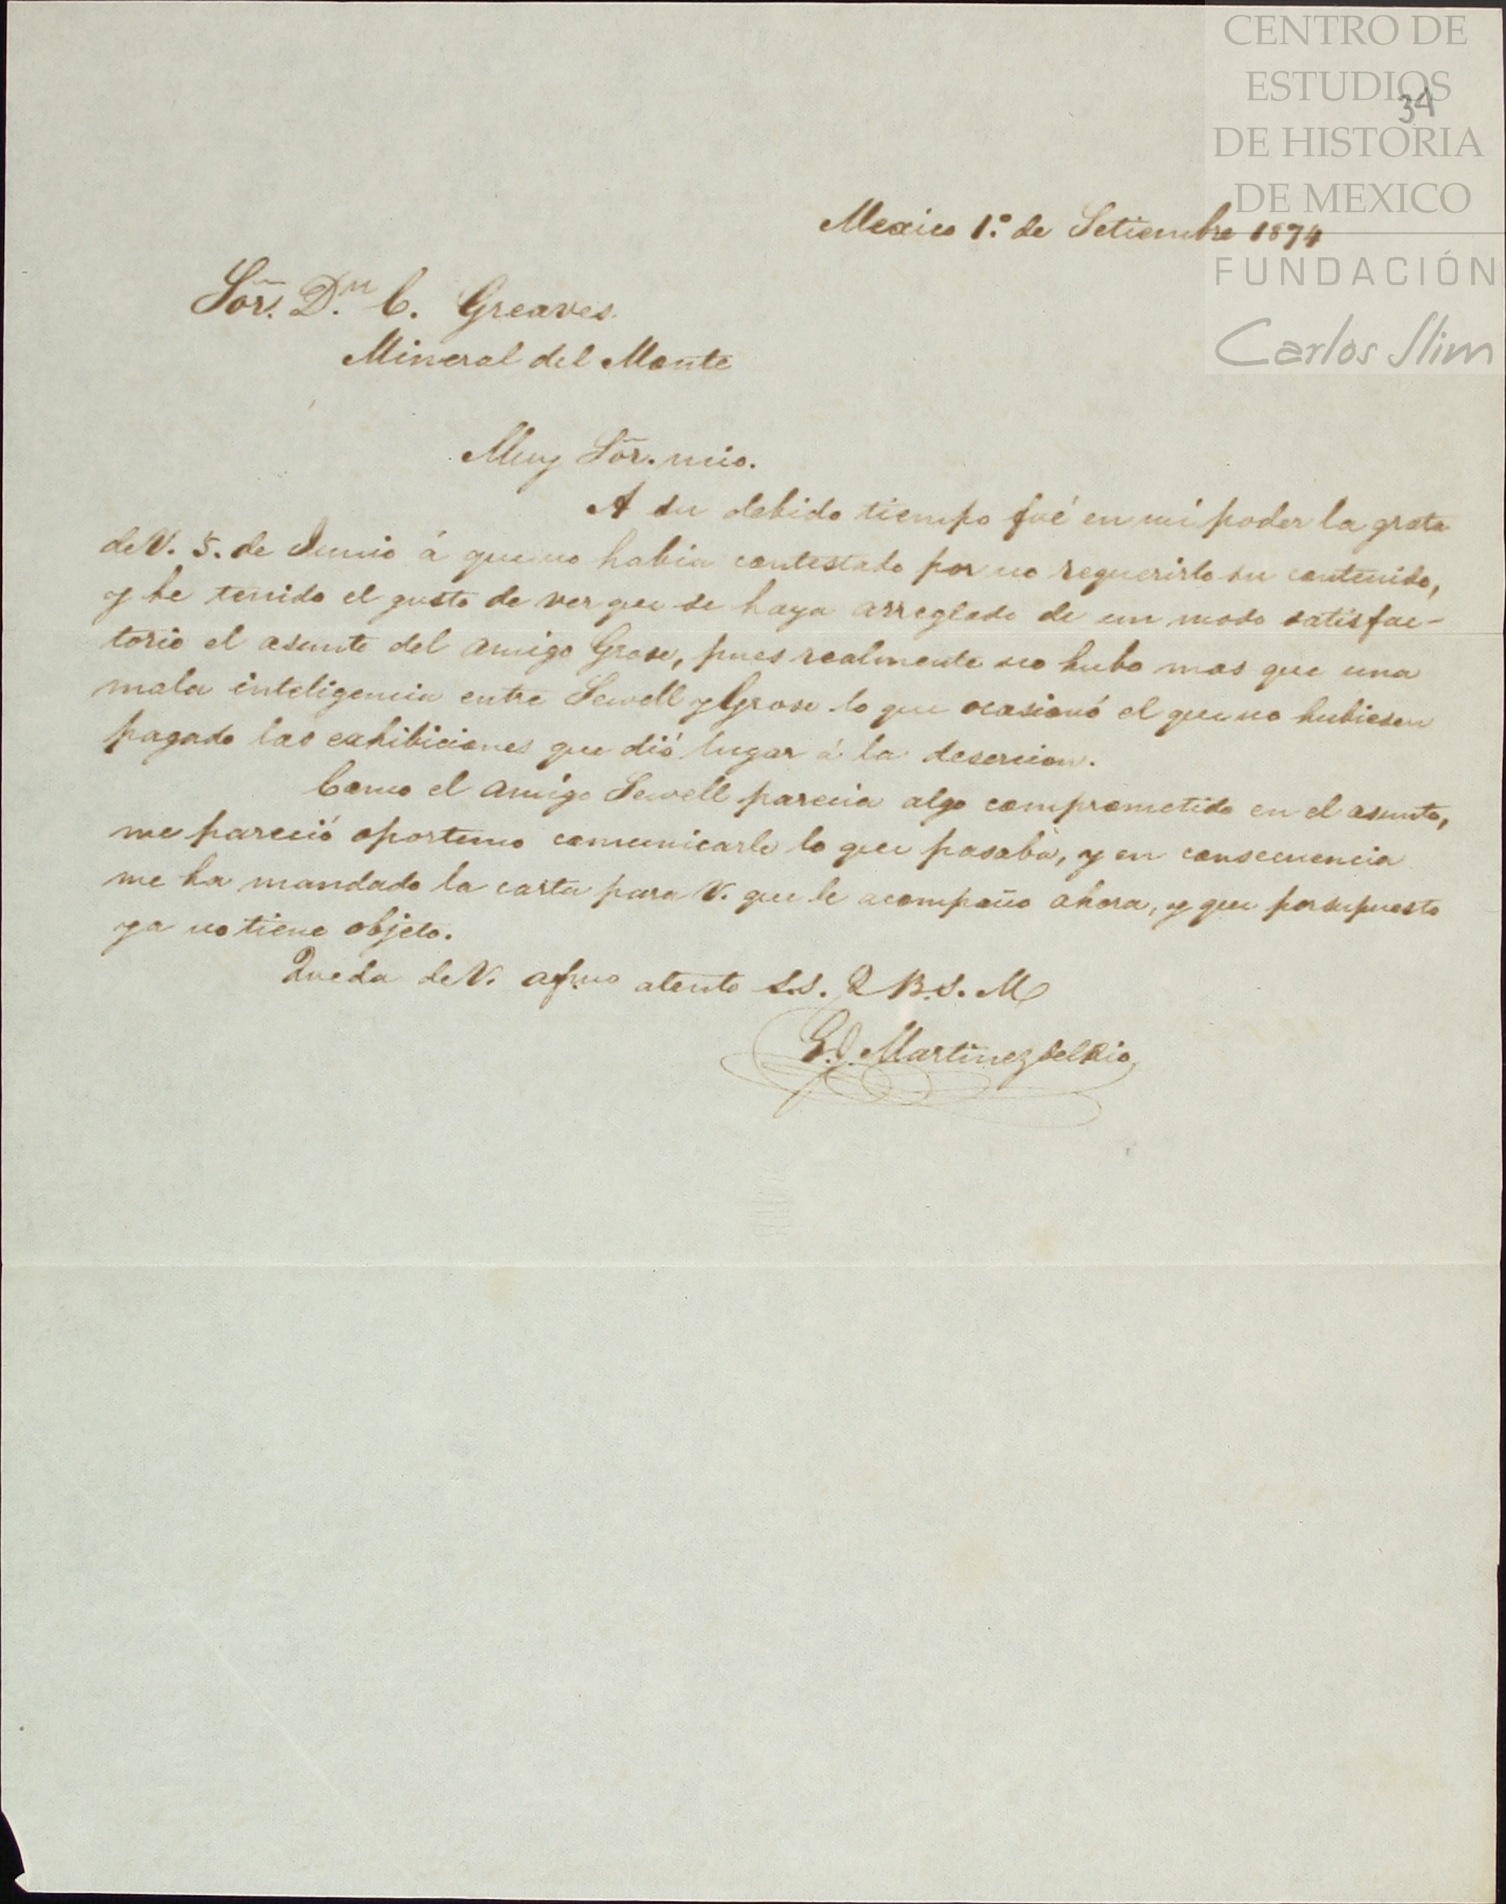 CENTRO DE
ESTUDIOS
34
DE HISTORIA
DE MEXICO
FUNDACIÓN
Carlos Slim
Mexico 1.º de Setiembre 1874
Sor. D.n C. Greaves.
Mineral del Monte
Muy Sor. mio.
A su debido tiempo fué en mi poder la grata
de V. 5. de Junio á que no habia contestado por no requerirlo su contenido,
y he tenido el gusto de ver que se haya arreglado de un modo satisfac-
torio el asunto del amigo Grose, pues realmente no hubo mas que una
mala inteligencia entre Sewell y Grose lo que ocasionó el que no hubiesen
pagado las exhibiciones que dió lugar á la desercion.
Como el amigo Sewell parecia algo comprometido en el asunto,
me pareció oportuno comunicarle lo que pasaba, y en consecuencia
me ha mandado la carta para V. que le acompaño ahora, y que por supuesto
ya no tiene objeto.
Queda de V. afmo atento S.S. Q B.S.M
G. J. Martinez del Rio